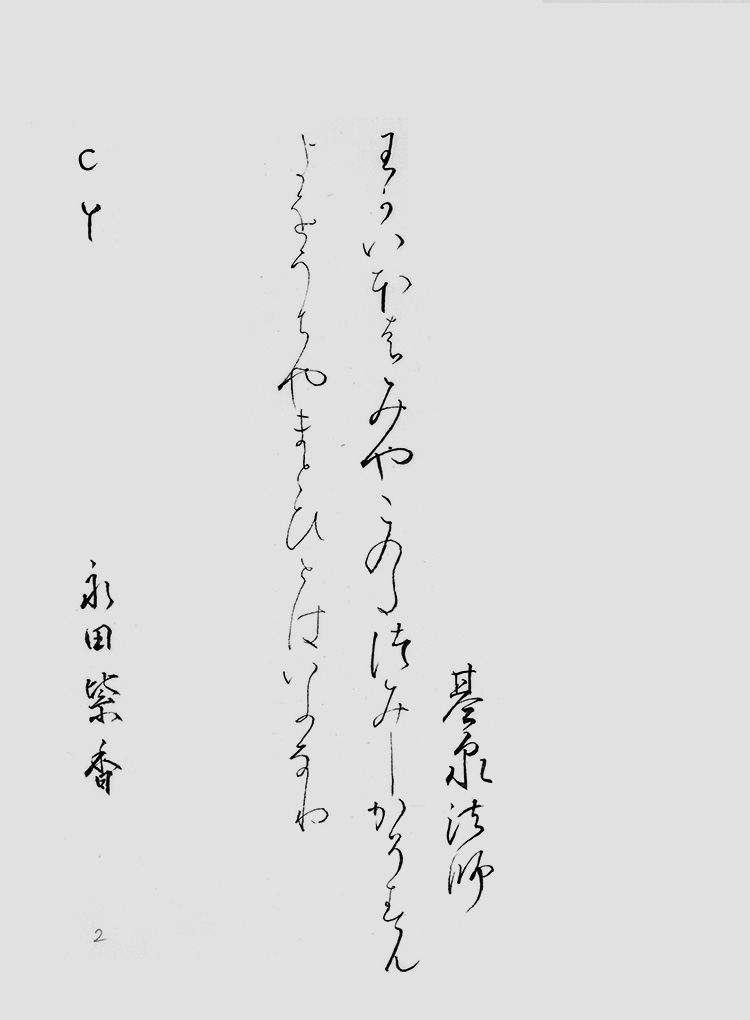 基泉法師
わかいほはみやこのたつみしかそすむ
よをうちやまとひとはいふなり
C Y
永田紫香
2